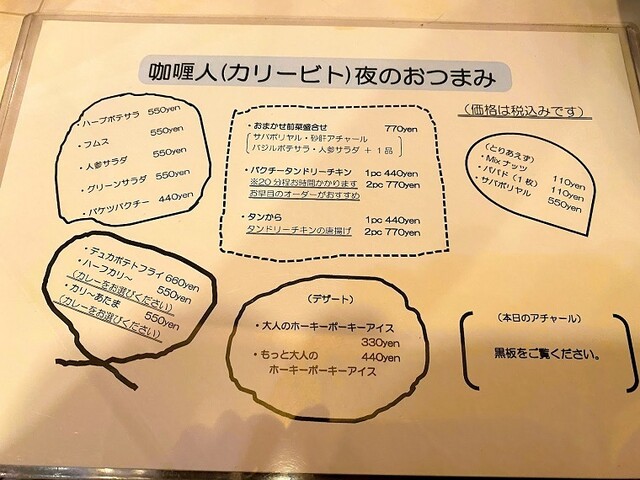 咖喱人(カリービト)夜のおつまみ
(価格は税込みです)
・ハーブポテサラ 550yen
・フムス 550yen
・人参サラダ 550yen
・グリーンサラダ 550yen
・バケツパクチー 440yen
・おまかせ前菜盛合せ 770yen
サバポリヤル・砂肝アチャール
バジルポテサラ・人参サラダ + 1品
・パクチータンドリーチキン 1pc 440yen
※20分程お時間かかります 2pc 770yen
お早目のオーダーがおすすめ
・タンから 1pc 440yen
タンドリーチキンの唐揚げ 2pc 770yen
(とりあえず)
・Mixナッツ 110yen
・パパド(1枚) 110yen
・サバポリヤル 550yen
・デュカポテトフライ 660yen
・ハーフカリ～ 550yen
(カレーをお選びください)
・カリ～あたま 550yen
(カレーをお選びください)
(デザート)
・大人のホーキーポーキーアイス
330yen
・もっと大人の 440yen
ホーキーポーキーアイス
(本日のアチャール)
黒板をご覧ください。